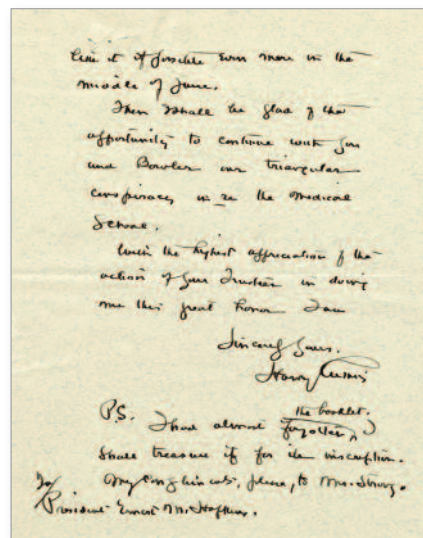 like it if possible even more in the
middle of June.
Then I shall be glad of the
opportunity to continue with you
and Bowler our triangular
conspiracy in re the Medical
School.
With the highest appreciation of the
action of your Trustees in doing
me this great honor I am
Sincerely yours,
Harvey Cushing
P.S. I had almost forgotten the booklet.
Shall treasure it for its inscription.
My , please, to Mrs.
To/
President Ernest M. Hopkins.